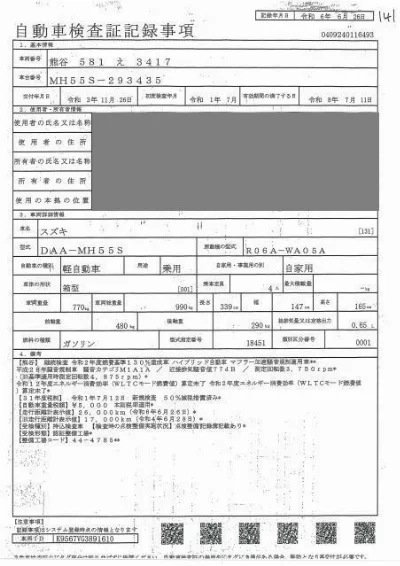 記録年月日 令和 6年 6月 26日
141
自動車検査証記録事項
0409240116493
1．基本情報
車両番号 熊谷 581 え 3417
車台番号 MH55S-293435
交付年月日 令和 3年11月26日 初度検査年月 令和 1年 7月 有効期間の満了する日 令和 8年 7月11日
2．使用者・所有者情報
使用者の氏名又は名称
使用者の住所
所有者の氏名又は名称
所有者の住所
使用の本拠の位置
3．車両詳細情報
車名 スズキ [131]
型式 DAA-MH55S 原動機の型式 R06A-WA05A
自動車の種別 軽自動車 用途 乗用 自家用・事業用の別 自家用
車体の形状 箱型 [001] 乗車定員 4人 最大積載量 -kg
車両重量 770kg 車両総重量 990kg 長さ 339cm 幅 147cm 高さ 165cm
前軸重 480kg 後軸重 290kg 総排気量又は定格出力 0.65 L
燃料の種類 ガソリン 型式指定番号 18451 類別区分番号 0001
4．備考
[熊谷] 継続検査 令和2年度燃費基準130%達成車 ハイブリッド自動車 マフラー加速騒音規制適用車**
平成28年騒音規制車 騒音カテゴリM1A1A ／ 近接排気騒音値77dB ／ 測定回転数3,750rpm
(旧基準適用時測定回転数4,875rpm)*
令和12年度エネルギー消費効率(WLTCモード燃費値)算定未了 令和2年度エネルギー消費効率(WLTCモード燃費値)
算定未了*
[31年度税制] 令和1年7月12日 新規検査 50%減税措置済み*
[自動車重量税額] ¥5,000 本則税率適用*
[走行距離計表示値] 26,000km (令和6年6月26日)*
[旧走行距離計表示値] 17,000km (令和4年6月29日)*
[受検種別] 持込検査車 [検査時の点検整備実施状況] 点検整備記録簿記載あり*
[受検形態] 認証整備工場*
[整備工場コード] 44-4785**
[注意事項]
記録事項はシステム登録時点の情報となります
車両ID K9567V03891610